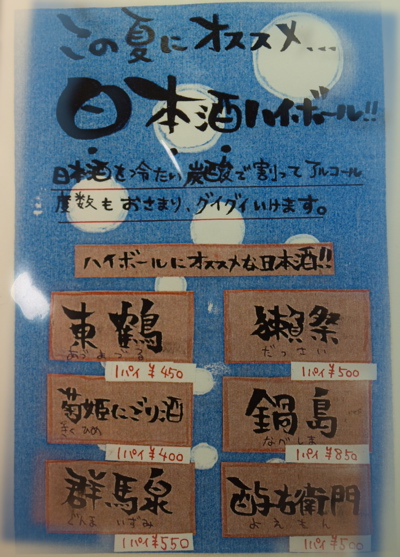 この夏にオススメ...
日本酒ハイボール!!
日本酒を冷たい炭酸で割ってアルコール
度数もおさまり、グイグイいけます。
ハイボールにオススメな日本酒!!
東鶴
あづまづる
1パイ ¥450
獺祭
だっさい
1パイ ¥500
菊姫にごり酒
きくひめ
1パイ ¥400
鍋島
なべしま
1パイ ¥850
群馬泉
ぐんまいずみ
1パイ ¥550
酉与右衛門
よえもん
1パイ ¥500